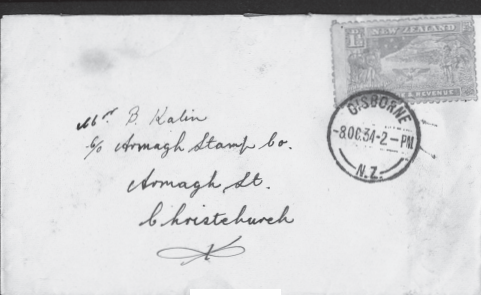 1½d
NEW ZEALAND
& REVENUE
GISBORNE
-8 OC 34 · 2 - PM
N.Z.
Mr B Kalin
c/o Armagh Stamp Co.
Armagh St.
Christchurch